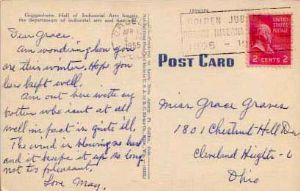 Guggenheim Hall of Industrial Arts houses
the department of industrial arts and
Dear Grace,
Am wondering how you
are this winter. Hope you
have kept well.
Am out here with my
brother who isn't at all
well in fact is quite ill.
The wind is blowing so hard
and it keeps it up so long
not to pleasant.
Love May.
GOLDEN JUBILEE
POST CARD
2 CENTS 2
Miss Grace Graves
1801 Chestnut Hill Dr
Cleveland Heights - 6
Ohio